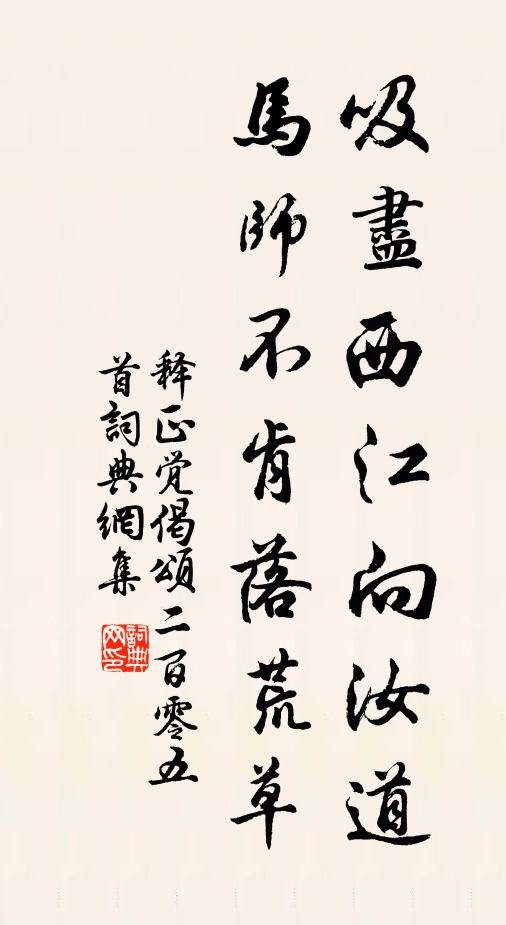 吸盡西江向汝道
馬師不肯落荒草
释正觉偈頌二百零五
首詞典網集
詞典
网印